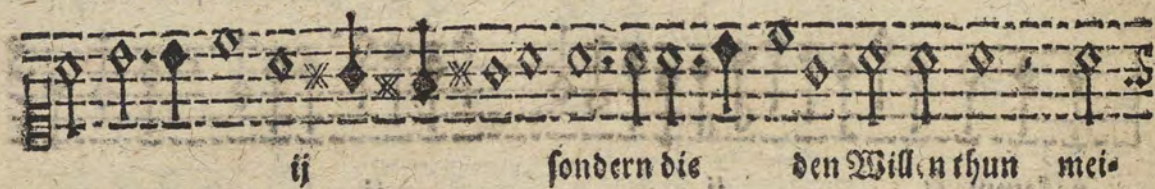 ij sondern die den Willen thun mei-